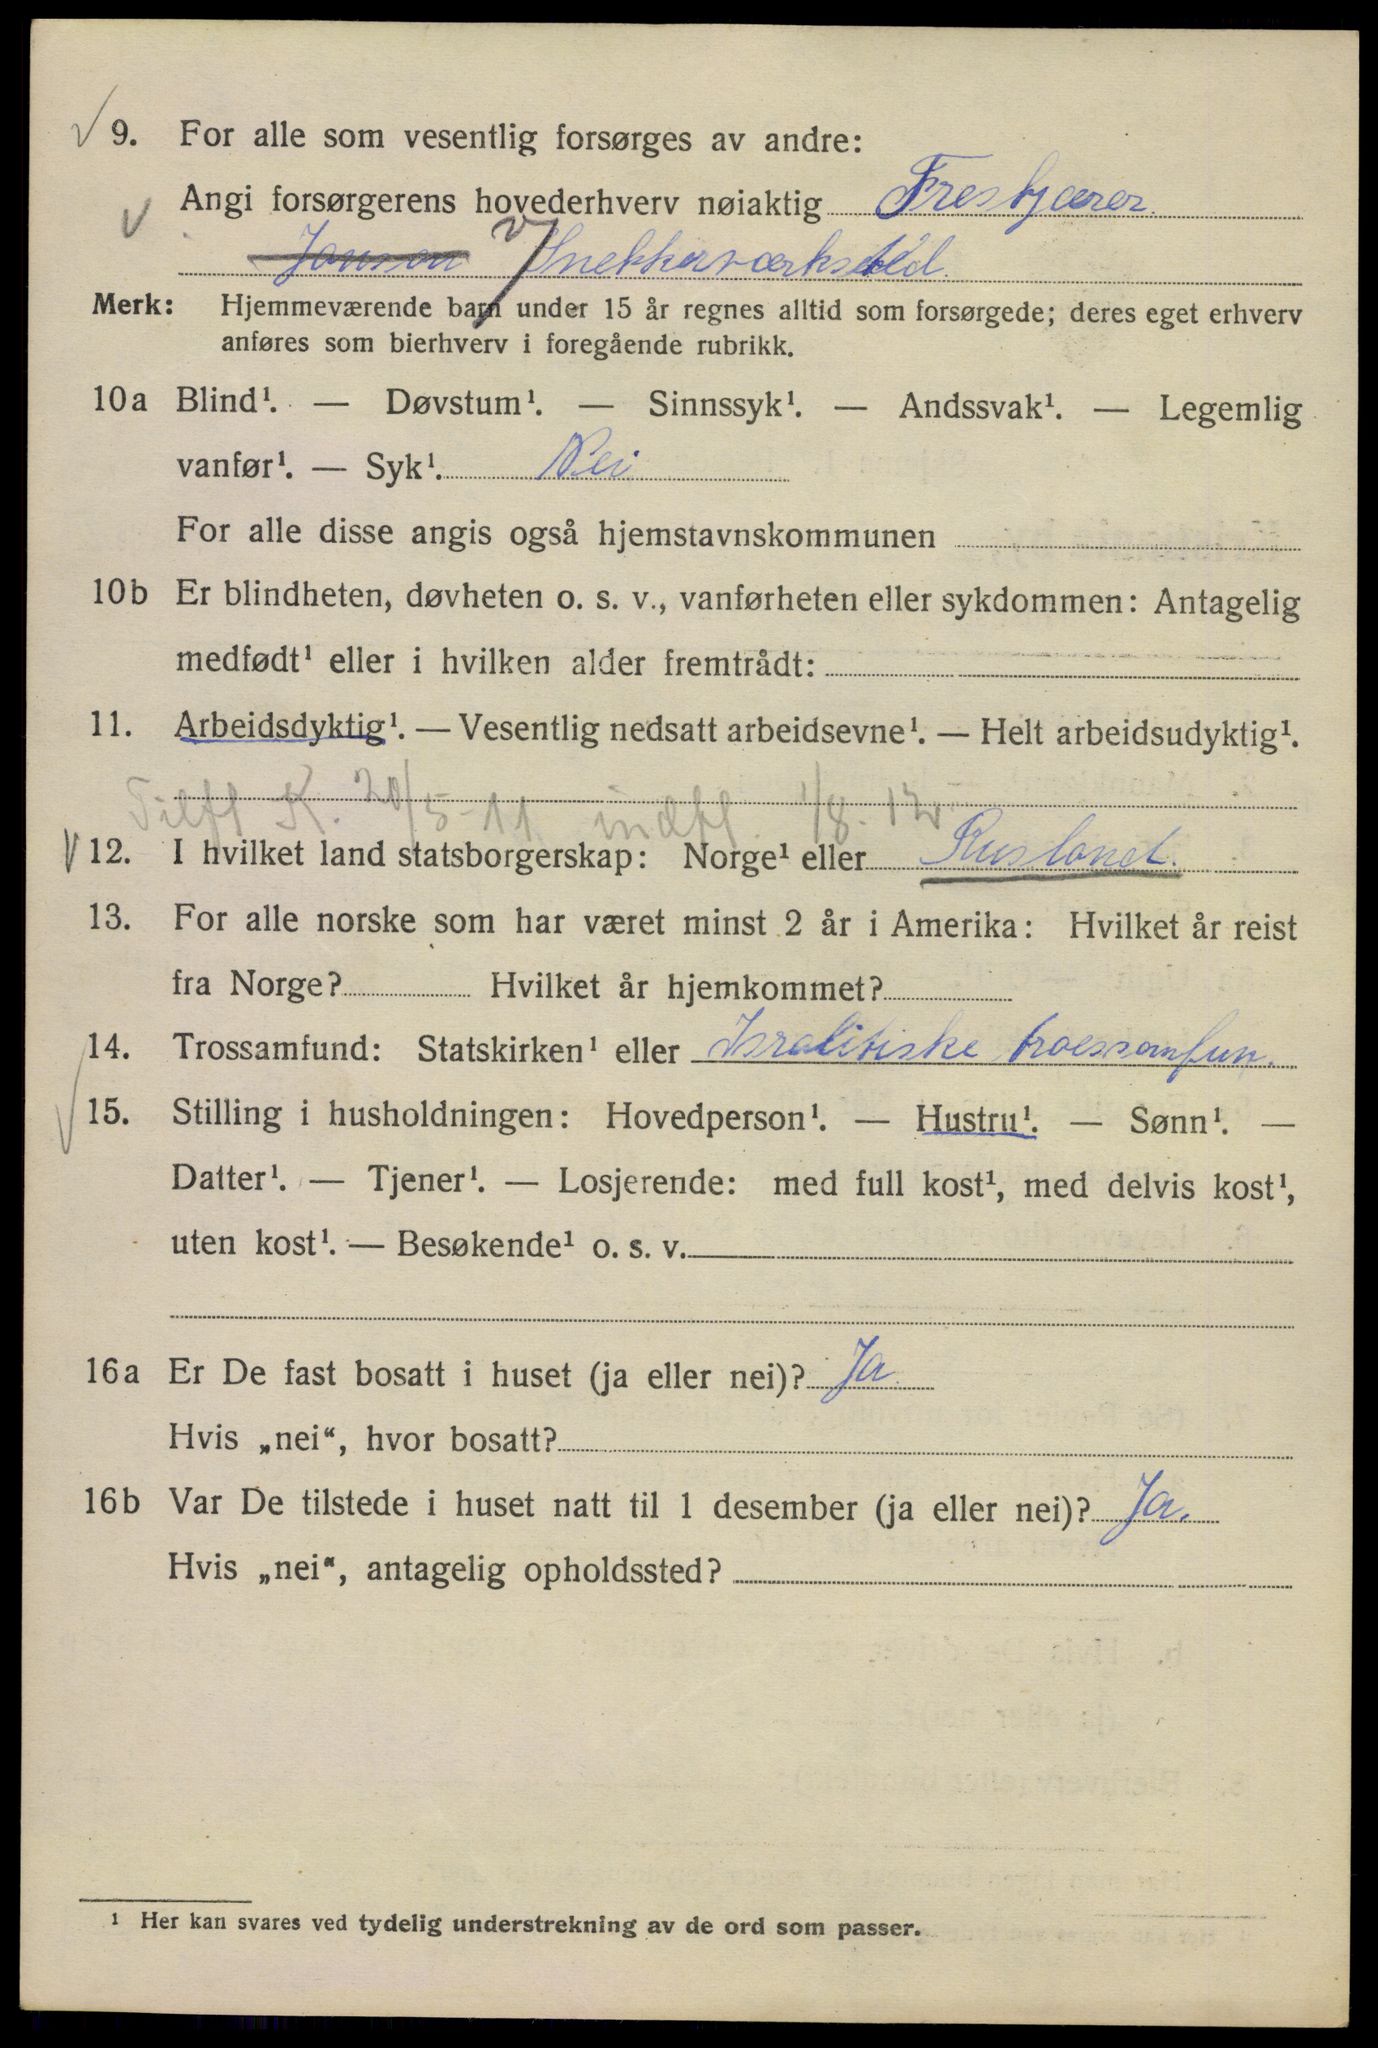 9. For alle som vesentlig forsørges av andre:
Angi forsørgerens hovederhverv nøiaktig Treskjærer.
Jonson Snekkerværksted.
Merk: Hjemmeværende barn under 15 år regnes alltid som forsørgede; deres eget erhverv
anføres som bierhverv i foregående rubrikk.
10a Blind¹. — Døvstum¹. — Sinnssyk¹. — Andssvak¹. — Legemlig
vanfør¹. — Syk¹. Nei
For alle disse angis også hjemstavnskommunen
10b Er blindheten, døvheten o. s. v., vanførheten eller sykdommen: Antagelig
medfødt¹ eller i hvilken alder fremtrådt:
11. Arbeidsdyktig¹. — Vesentlig nedsatt arbeidsevne¹. — Helt arbeidsudyktig¹.
Tilfl K. 20/5-11 indfl. 1/8.12
12. I hvilket land statsborgerskap: Norge¹ eller Rusland.
13. For alle norske som har været minst 2 år i Amerika: Hvilket år reist
fra Norge? Hvilket år hjemkommet?
14. Trossamfund: Statskirken¹ eller Isralitiske troessamfun.
15. Stilling i husholdningen: Hovedperson¹. — Hustru¹. — Sønn¹. —
Datter¹. — Tjener¹. — Losjerende: med full kost¹, med delvis kost¹,
uten kost¹. — Besøkende¹ o. s. v.
16a Er De fast bosatt i huset (ja eller nei)? Ja.
Hvis „nei“, hvor bosatt?
16b Var De tilstede i huset natt til 1 desember (ja eller nei)? Ja.
Hvis „nei“, antagelig opholdssted?
¹ Her kan svares ved tydelig understrekning av de ord som passer.